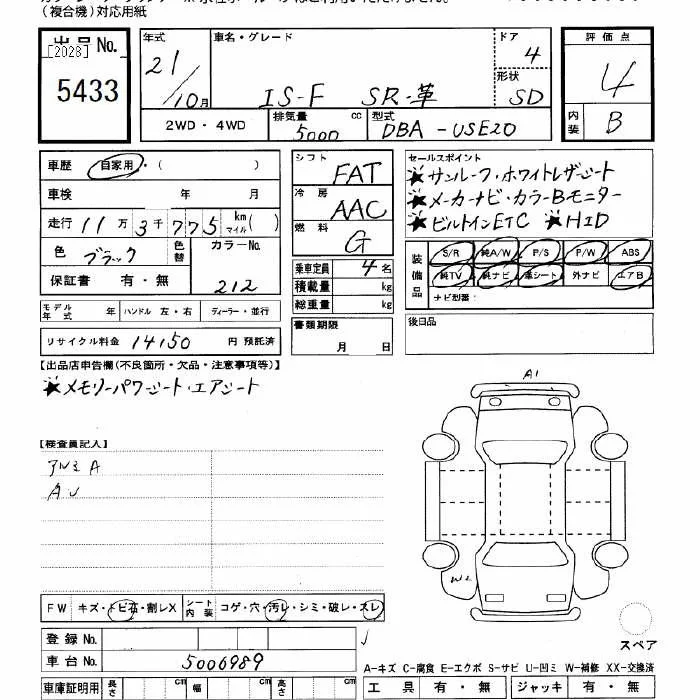 (複合機)対応用紙
出品No.
[2028]
5433
年式
21/10月
車名・グレード
IS-F SR・革
ドア
4
形状
SD
評価点
4
内装
B
2WD・4WD
排気量
5000
cc
型式
DBA-USE20
車歴
自家用・( )
車検 年 月
走行 11万3千775 km マイル( )
色 ブラック
色替
カラーNo.
212
保証書 有・無
モデル年式 年
ハンドル 左・右
ディーラー・並行
リサイクル料金 14150 円 預託済
シフト
FAT
冷房
AAC
燃料
G
乗車定員 4 名
積載量 kg
総重量 kg
書類期限
月 日
セールスポイント
★サンルーフ・ホワイトレザーシート
★メーカーナビ・カラーBモニター
★ビルトインETC ★HID
装備品
S/R 純A/W P/S P/W ABS
純TV 純ナビ 革シート 外ナビ エアB
ナビ型番:
後日品
【出品店申告欄(不良箇所・欠品・注意事項等)】
★メモリーパワーシート・エアシート
【検査員記入】
アルミA
AU
A1
W2
スペア
FW キズ・トビ石・割レX
シート内装 コゲ・穴・汚レ・シミ・破レ・スレ
登録No.
車台No. 5006989
車庫証明用 長さ cm 幅 cm 高さ cm
A-キズ C-腐食 E-エクボ S-サビ U-凹ミ W-補修 XX-交換済
工具 有・無 ジャッキ 有・無